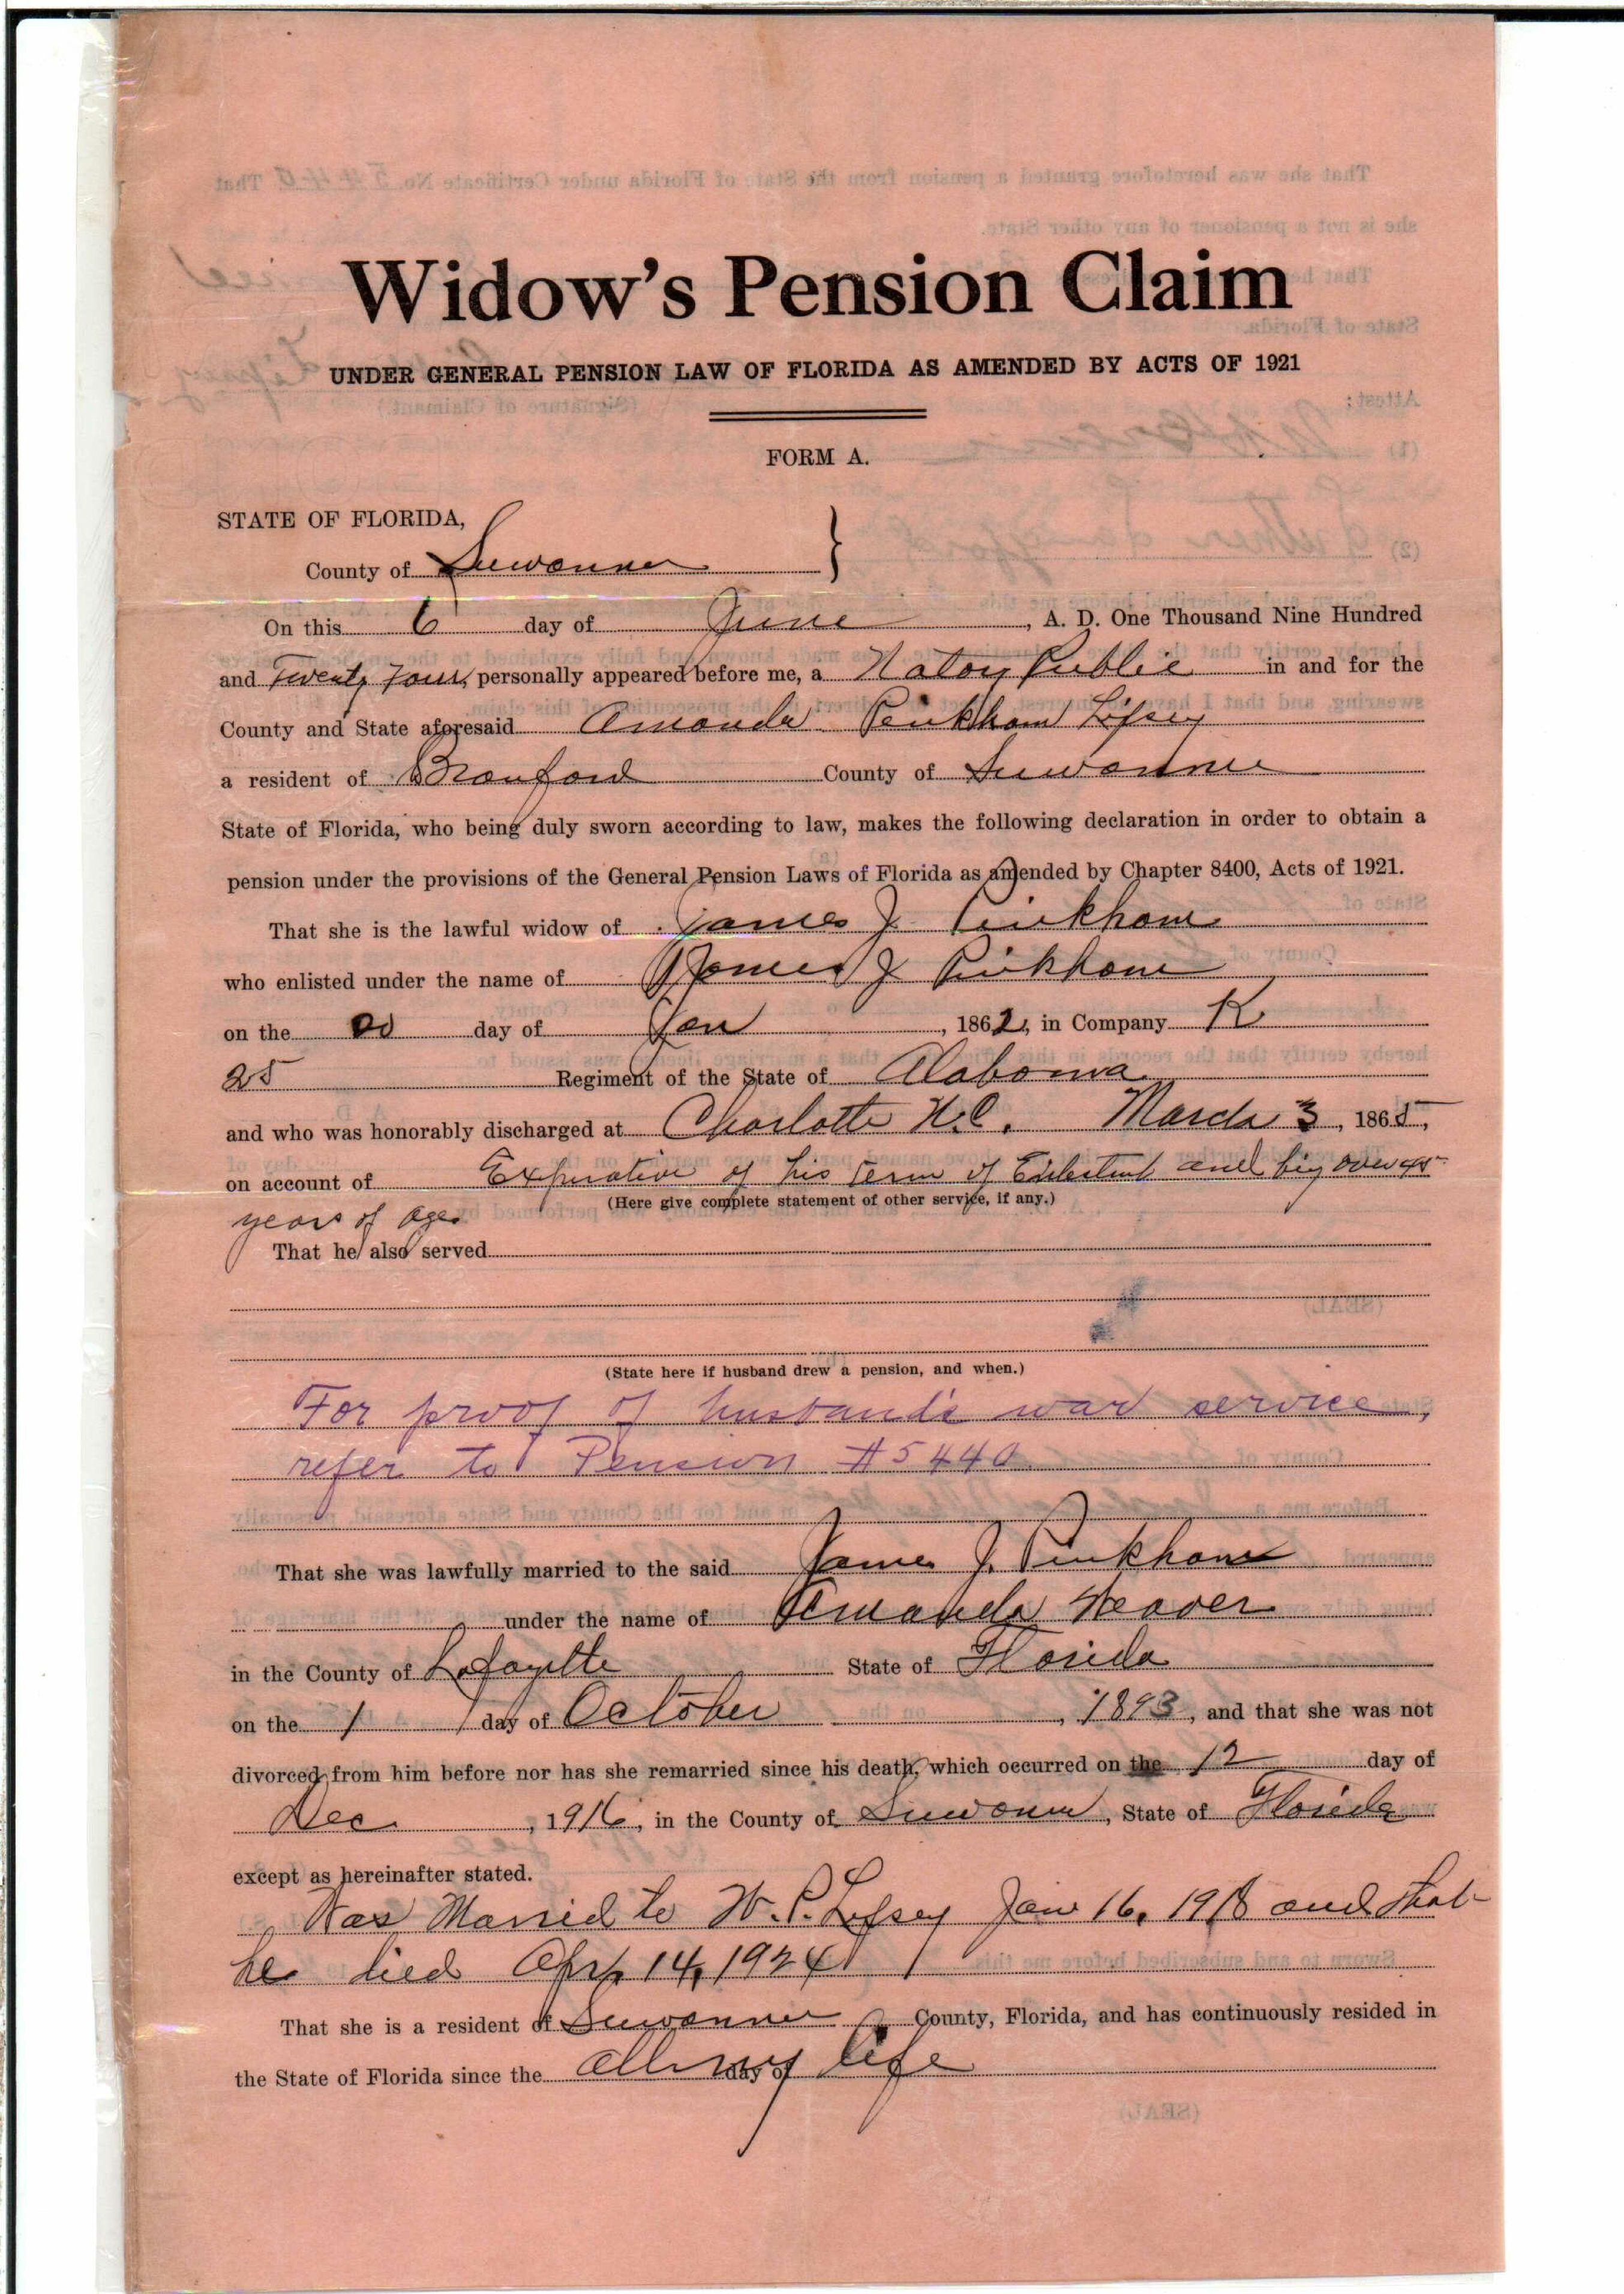 Widow's Pension Claim
UNDER GENERAL PENSION LAW OF FLORIDA AS AMENDED BY ACTS OF 1921
FORM A.
STATE OF FLORIDA,
County of Suwannee }
On this 6 day of June, A. D. One Thousand Nine Hundred
and Twenty Four, personally appeared before me, a Natoy Public in and for the
County and State aforesaid Amanda Pinkham Lipsey
a resident of Branford County of Suwannee
State of Florida, who being duly sworn according to law, makes the following declaration in order to obtain a
pension under the provisions of the General Pension Laws of Florida as amended by Chapter 8400, Acts of 1921.
That she is the lawful widow of James J Pinkham
who enlisted under the name of James J Pinkham
on the day of Jan, 1862, in Company K
25 Regiment of the State of Alabama
and who was honorably discharged at Charlotte N.C. March 3, 1865,
on account of Expiration of his term of and being over 45
(Here give complete statement of other service, if any.)
years of age.
That he also served
(State here if husband drew a pension, and when.)
For proof of husband's war service,
refer to Pension #5440
That she was lawfully married to the said James J. Pinkham
under the name of Amanda Weaver
in the County of Lafayette State of Florida
on the 1 day of October, 1893, and that she was not
divorced from him before nor has she remarried since his death, which occurred on the 12 day of
Dec., 1916, in the County of Suwannee, State of Florida
except as hereinafter stated.
Was Married to W. P. Lipsey Jan 16, 1918 and that
he died Apr 14, 1924
That she is a resident of Suwannee County, Florida, and has continuously resided in
the State of Florida since the all my day of life